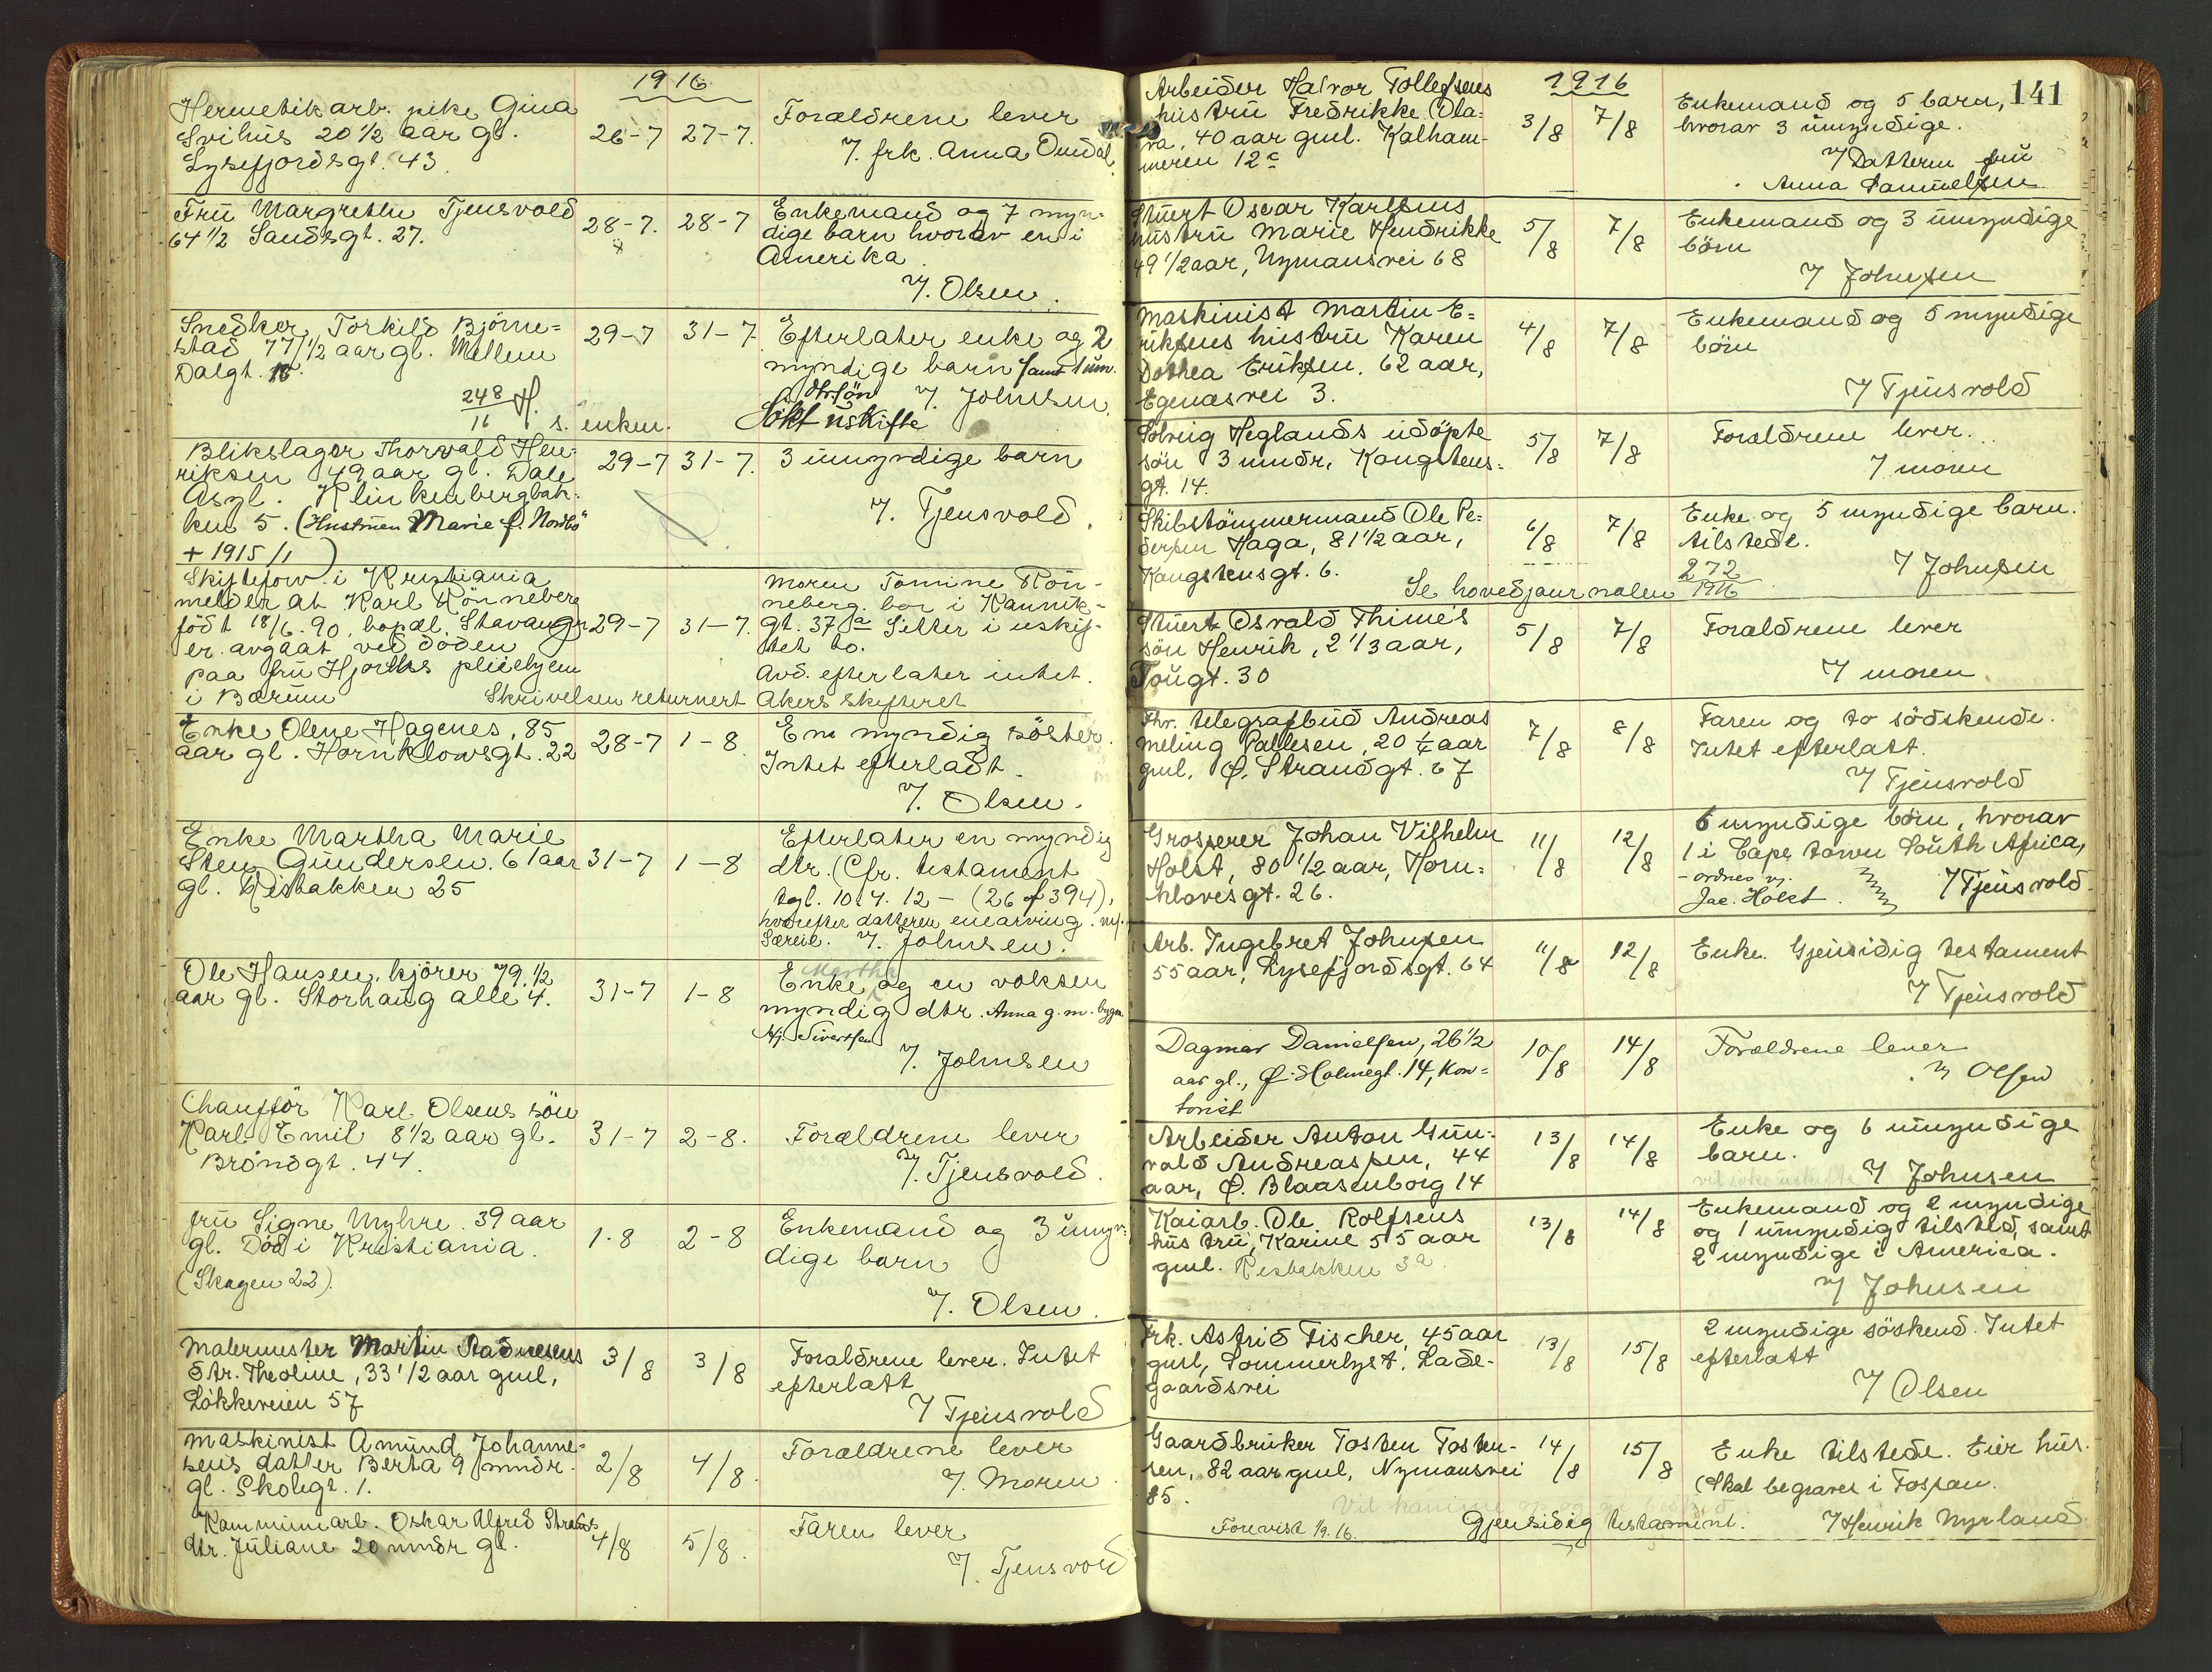 1916
Hermetikarb. pike Gina
Svihus 20 1/2 aar gl.
Lysefjordsgt. 43
26-7 27-7.
Forældrene lever
v/. frk. Anna
Fru Margrethe Tjensvold
64 1/2 Sandsgt. 27.
28-7. 28-7
8
Enkemand og 7 myn-
dige barn hvorav en i
Amerika
v/. Olsen.
Snedker Torkild Bjørne=
stad 77 1/2 aar gl. Mellem
Dalgt.
29-7 31-7.
Efterlater enke og 2
myndige barn samt 1 um.
v/. Johnsen.
248/16 H. s. enken.
Søkt uskifte
Blikslager Thorvald Hen-
riksen 49 aar gl. Dale
Asyl. Klinkenbergbak-
ken 5. (Hustruen Marie f. Nordbö
+ 1915/1)
29-7 31-7.
3 umyndige barn
v/. Tjensvold.
Skifteforv. i Kristiania
melder at Karl Rönneberg
födt 18/6. 90, bopæl Stavanger
er avgaat ved döden
paa fru Hjorths pleiehjem
i Bærum
29-7 31-7.
Moren Tomine Rön-
neberg bor i Kannik-
gt. 37a Sitter i uskif-
tet bo.
Avd. efterlater intet.
Skrivelsen returnert Akers skifteret
Enke Olene Hagenes, 85
aar gl. Hornklovsgt. 22
28-7 1-8
En myndig söster.
Intet efterladt.
v/. Olsen.
Enke Martha Marie
Sten Gundersen. 61 aar
gl. Risbakken 25
31-7 1-8
Efterlater en myndig
dtr. (Cfr. testament
tgl. 10.4. 12 - (26 f 394),
hvorefter datteren enearving.
Særeie. v/. Johnsen.
Ole Hansen, kjörer 79. 1/2
aar gl. Storhaug alle 4.
31-7 1-8
Martha
Enke og en voksen
myndig dtr. Anna g. m. bygm.
Hj. Sivertsen
v/. Johnsen
Chaufför Karl Olsens sön
Karl Emil 8 1/2 aar gl.
Bröndgt. 44.
31-7 2-8.
Forældrene lever
v/. Tjensvold.
Fru Signe Myhre. 39 aar
gl. Död i Kristiania.
(Skagen 22).
1-8 2-8
Enkemand og 3 umyn-
dige barn
v/. Olsen.
Malermester Martin Stadnesens
dtr. Theoline, 33 1/2 aar gml,
Lökkeveien 57
3/8 3/8
Forældrene lever. Intet
efterlatt
v/ Tjensvold
Maskinist Amund Johanne-
sens datter Berta 9 mndr.
gl. Skolegt. 1.
2/8 4/8.
Forældrene lever
v/. Moren
Kamminarb. Oskar Alfred
dtr. Juliane 20 mndr gl.
4/8 5/8.
Faren lever
v/. Tjensvold
1916
141
Arbeider Halvor Tollefsens
hustru Fredrikke Ola-
va, 40 aar gml. Kalham-
meren 12c
3/8 7/8
Enkemand og 5 barn,
hvorav 3 umyndige.
v/ Datteren fru
Anna Samuelsen
Stuert Oscar Karlsens
hustru Marie Hendrikke
49 1/2 aar, Nymansvei 68
5/8 7/8
Enkemand og 3 umyndige
börn
v/ Johnsen
Maskinist Martin E=
riksens hustru Karen
Dothea Eriksen. 62 aar,
Egenæsvei 3.
4/8 7/8
Enkemand og 5 myndige
börn
v/ Tjensvold
Solveig Heglands udöpte
sön 3 mndr, Kongstens-
gt. 14.
5/8 7/8
Forældrene lever.
v/ moren
Skibstömmermand Ole Pe-
dersen Haga, 81 1/2 aar,
Kongstensgt. 6.
6/8 7/8
Enke og 5 myndige barn.
tilstede.
v/ Johnsen
Se hovedjournalen 272/1916
Stuert Osvald Thime's
sön Henrik, 2 1/3 aar,
Tougt. 30
5/8 7/8
Forældrene lever
v/ moren
Fhv. telegrafbud Andreas
Meling Pallesen, 20 1/4 aar
gml, Ø. Strandgt. 67
7/8 8/8
Faren og to södskende.
Intet efterlatt.
v/ Tjensvold
Grosserer Johan Vilhelm
Holst, 80 1/2 aar, Horn-
klovesgt. 26.
11/8 12/8
6 myndige börn, hvorav
1 i Cape town South Africa,
- ordnes v.
Jac. Holst. v/ Tjensvold.
Arb. Ingebret Johnsen
55 aar, Lysefjordsgt. 64
11/8 12/8
Enke. Gjensidig testament
v/ Tjensvold
Dagmar Danielsen, 26 1/2
aar gl., Ø. Holmegt. 14, Kon-
torist
10/8 14/8
Forældrene lever
v/ Olsen
Arbeider Anton Gun-
vald Andreassen, 44
aar, Ø. Blaasenborg 14
13/8 14/8
Enke og 6 umyndige
barn.
vil söke uskifte v/ Johnsen
Kaiarb. Ole Rolfsens
hustru, Karine 55 aar
gml. Resbakken 3a.
13/8 14/8
Enkemand og 2 myndige
og 1 umyndig tilsted, samt
2 myndige i America.
v/ Johnsen
Frk. Astrid Fischer, 45 aar
gml, Sommerlyst, Lade-
gaardsvei
13/8 15/8
2 myndige söskend. Intet
efterlatt
v/ Olsen
Gaardbruker Tosten Tosten-
sen, 82 aar gml, Nymansvei
85.
14/8 15/8
Enke tilstede. Eier hus.
(Skal begraves i Fossan.
Vil komme op og gi besked
Forevist 1/9. 16. Gjensidig testament. v/ Henrik Nyrland